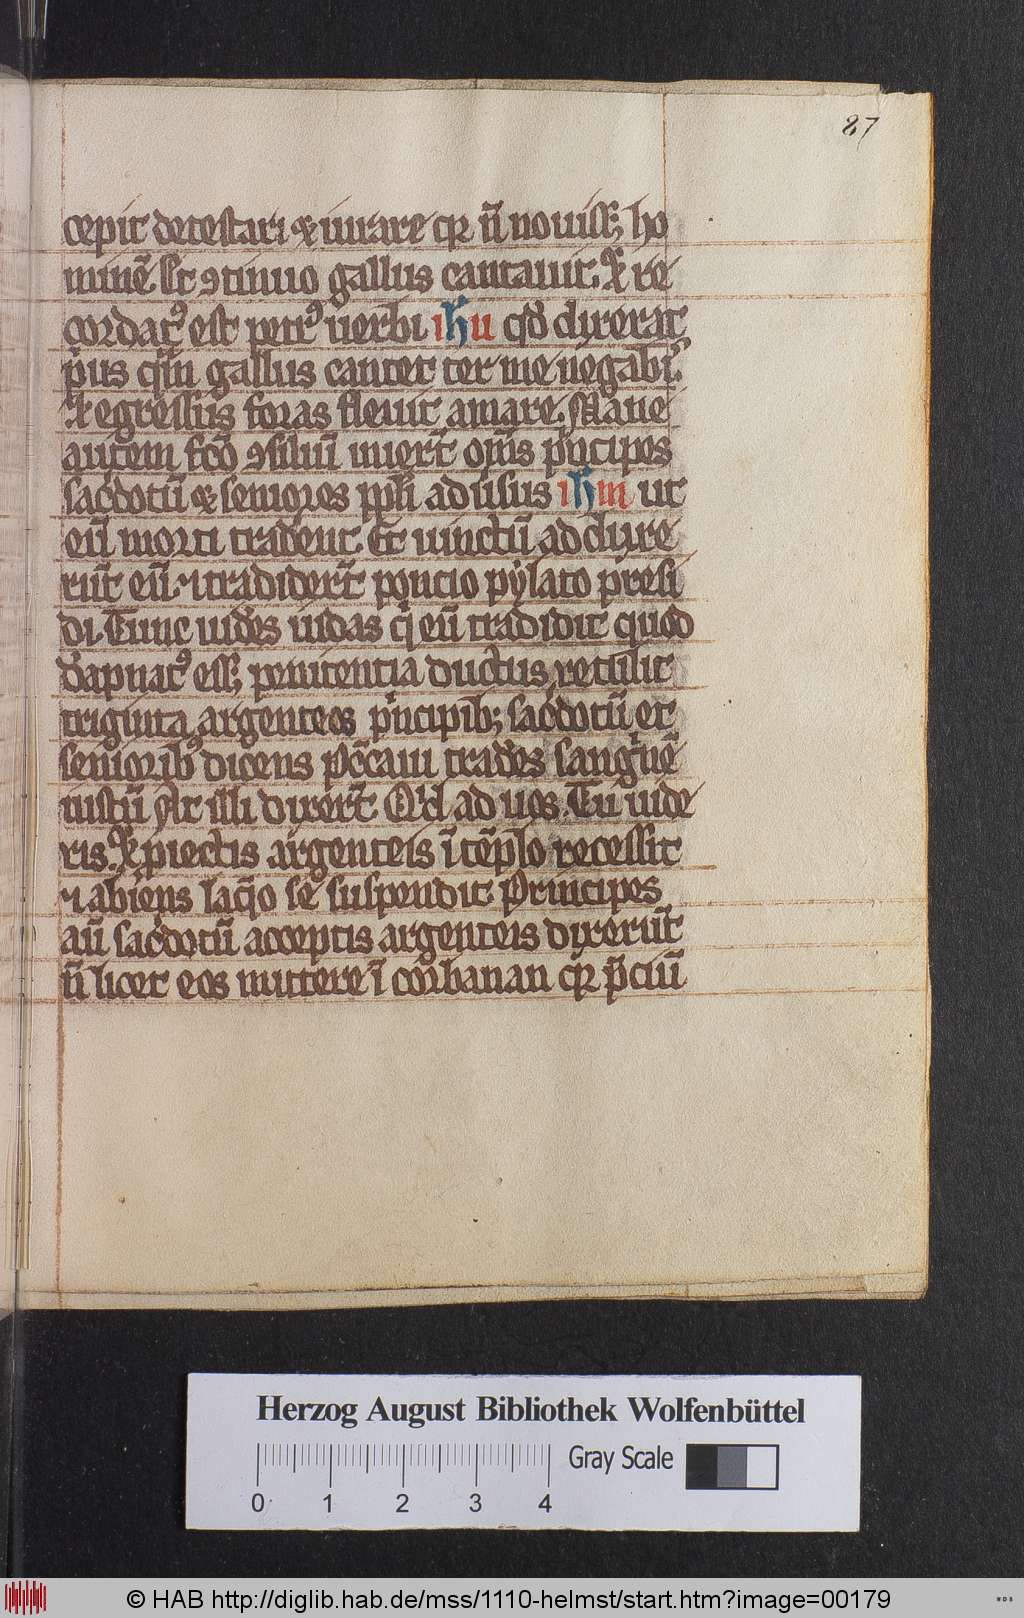 87
cepit detestari ⁊ iurare qꝛ n̄ nouiſſꝫ ho
minē. ſt̄ ꝯtinuo gallus cantauit. ⁊ re
cordatꝰ est petrꝰ uerbi ihu qd̓ dixerat
p̓us qͣm gallus cantet ter me negabiſ.
⁊ egressus foras fleuit amare. Mane
autem fc̄o ꝯsiliū inierūt om̄s pͥncipes
sac̓dotū ⁊ seniores pp̄li aduͥsus ihm ut
eū morti tradeͬnt. Et uinctū adduxe
rūt eū. ⁊ tradiderūt poncio pylato presi
di. Tunc uidēs iudas qͥ eū tradidit quod
dāpnatꝰ eſſꝫ penitentia ductus retulit
triginta argenteos pͥncipibꝫ sac̓dotū et
senioribꝰ dicens Pec̄caui tradēs sangͥnē
iustū At illi dixerūt Qͥd ad nos. Tu uide
ris. ⁊ piectis argenteis ī tēplo recessit
⁊ abiens laq̓o se suspendit Principes
au̅ sac̓dotū acceptis argenteis dixerūt
n̄ licet eos mittere ī corbanan qꝛ p̓ciū
Herzog August Bibliothek Wolfenbüttel
Gray Scale
0 1 2 3 4
© HAB http://diglib.hab.de/mss/1110-helmst/start.htm?image=00179